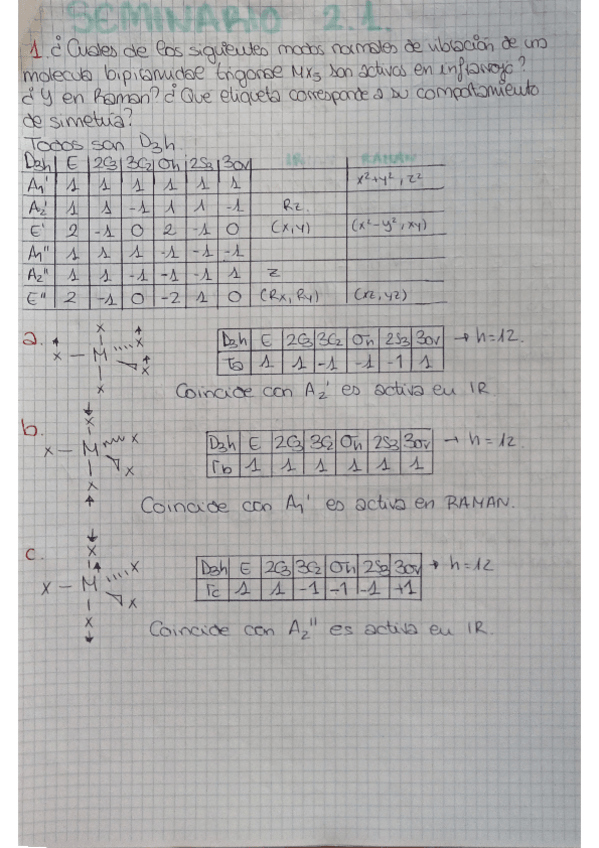 SEMINARIO 2.1.
1. ¿Cuales de los siguientes modos normales de vibración de una
molecula bipiramidal trigonal MX5 son activas en infrarrojo?
¿Y en Raman? ¿Que etiqueta corresponde a su comportamiento
de simetria?
Todos son D3h.
D3h E 2C3 3C2 σh 2S3 3σv IR RAMAN
A1' 1 1 1 1 1 1 x²+y², z²
A2' 1 1 -1 1 1 -1 Rz.
E' 2 -1 0 2 -1 0 (x,y) (x²-y², xy)
A1'' 1 1 1 -1 -1 -1
A2'' 1 1 -1 -1 -1 1 z
E'' 2 -1 0 -2 1 0 (Rx, Ry) (xz, yz)
a. x x x – M x x
D3h E 2C3 3C2 σh 2S3 3σv → h=12.
Γa 1 1 -1 -1 -1 1
Coincide con A2' es activa en IR
b. x x – M x x x
D3h E 2C3 3C2 σh 2S3 3σv → h=12
Γb 1 1 1 1 1 1
Coincide con A1' es activa en RAMAN.
c. x x – M x x x
D3h E 2C3 3C2 σh 2S3 3σv → h=12
Γc 1 1 -1 -1 -1 +1
Coincide con A2'' es activa en IR.